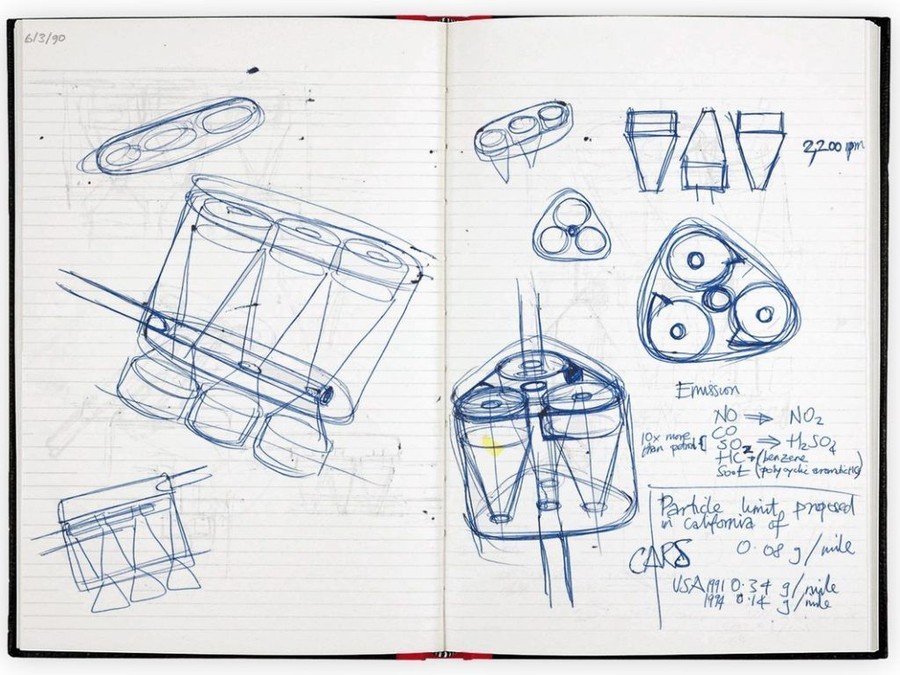 6/3/90
2,200 rpm
Emission
NO ⇒ NO2
CO
10x more
than petrol {
SO2 ⇒ H2SO4
HC → (benzene
Soot (polycyclic aromatics)
Particle limit proposed
in california of
0.08 g/mile
CARS
USA 1991 0.34 g/mile
1994 0.14 g/mile